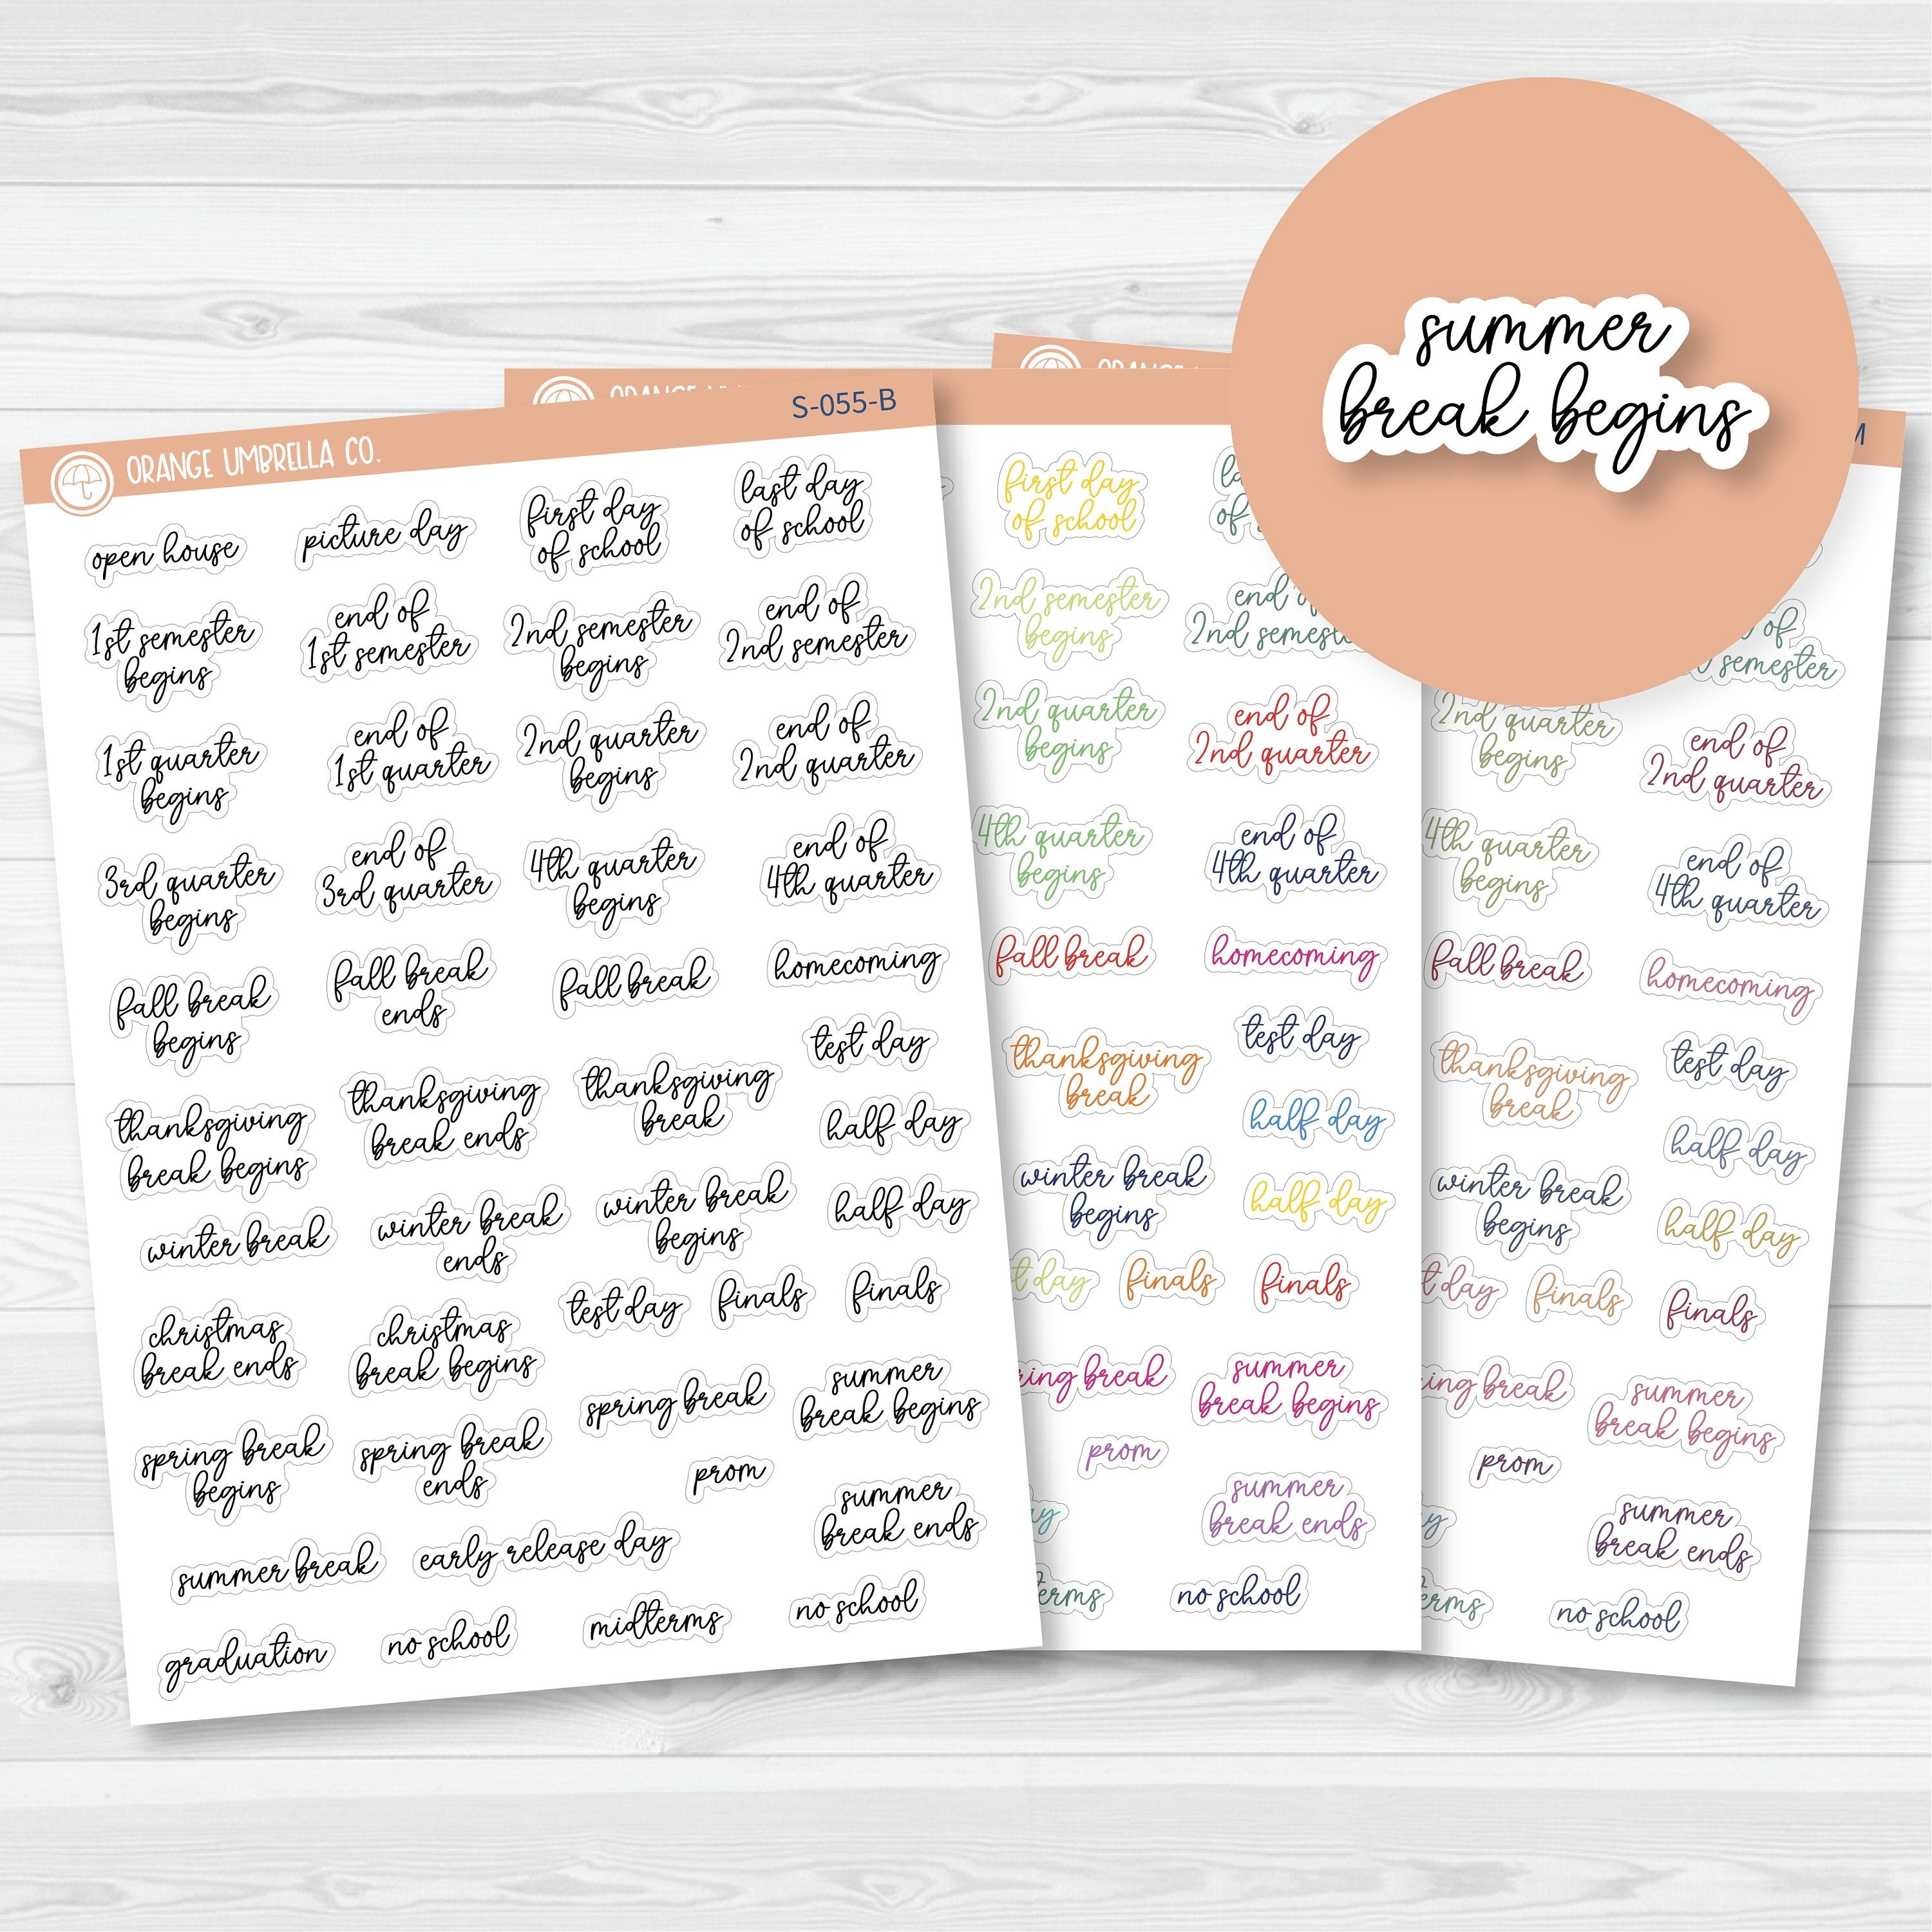 summer
break begins
ORANGE UMBRELLA CO.
S-055-B
open house
picture day
first day
of school
last day
of school
1st semester
begins
end of
1st semester
2nd semester
begins
end of
2nd semester
1st quarter
begins
end of
1st quarter
2nd quarter
begins
end of
2nd quarter
3rd quarter
begins
end of
3rd quarter
4th quarter
begins
end of
4th quarter
fall break
begins
fall break
ends
fall break
homecoming
test day
thanksgiving
break begins
thanksgiving
break ends
thanksgiving
break
half day
winter break
winter break
ends
winter break
begins
half day
christmas
break ends
christmas
break begins
test day
finals
finals
spring break
begins
spring break
ends
spring break
summer
break begins
prom
summer break
early release day
summer
break ends
graduation
no school
midterms
no school
ORANGE
first day
of school
2nd semester
begins
end of
2nd semester
2nd quarter
begins
end of
2nd quarter
4th quarter
begins
end of
4th quarter
fall break
homecoming
test day
thanksgiving
break
half day
winter break
begins
half day
day
finals
finals
break
summer
break begins
prom
summer
break ends
no school
M
of
semester
2nd quarter
begins
end of
2nd quarter
4th quarter
begins
end of
4th quarter
fall break
homecoming
test day
thanksgiving
break
half day
winter break
begins
half day
day
finals
finals
break
summer
break begins
prom
summer
break ends
no school